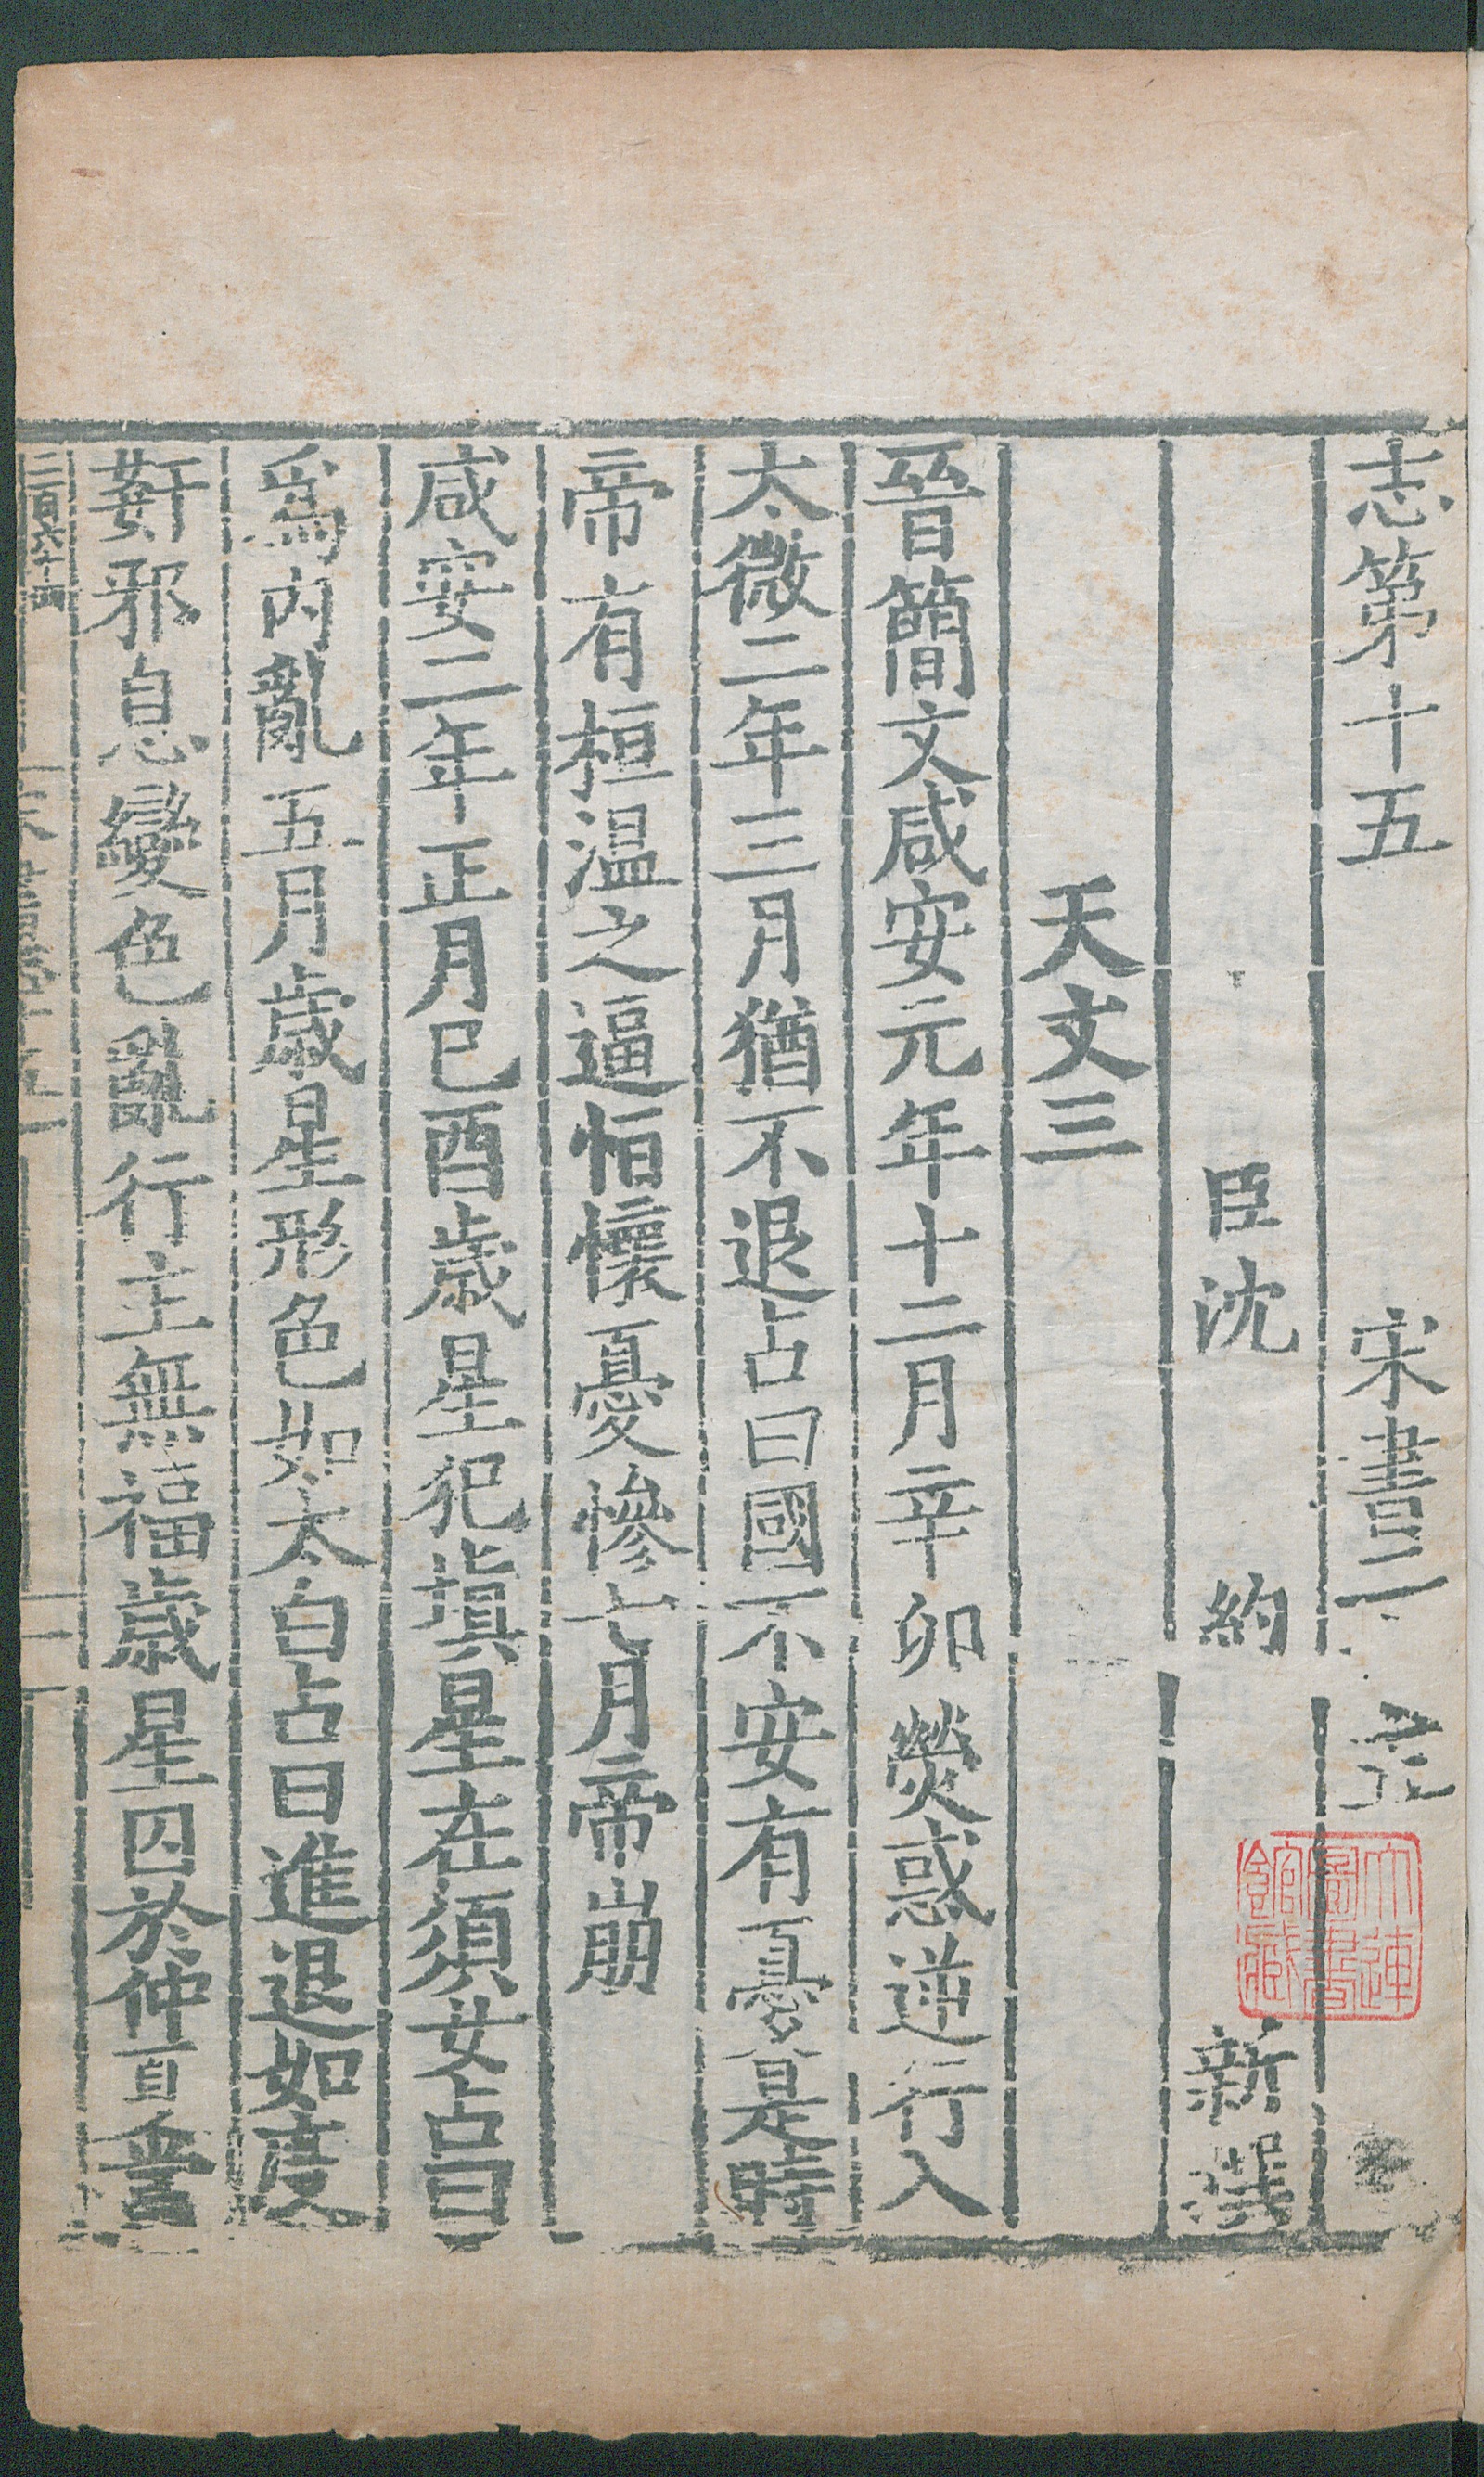 志第十五 宋書二
臣沈 約 新撰
天文三
晉簡文咸安元年十二月辛卯熒惑逆行入
太微二年三月猶不退占曰國不安有憂是時
帝有桓溫之逼恒懷憂慘七月帝崩
咸安二年正月巳酉歲星犯塡星在須女占曰
爲內亂五月歲星形色如太白占曰進退如度
姧邪息變色亂行主無福歲星囚於仲直當
二百六十
大連
圖書
館藏